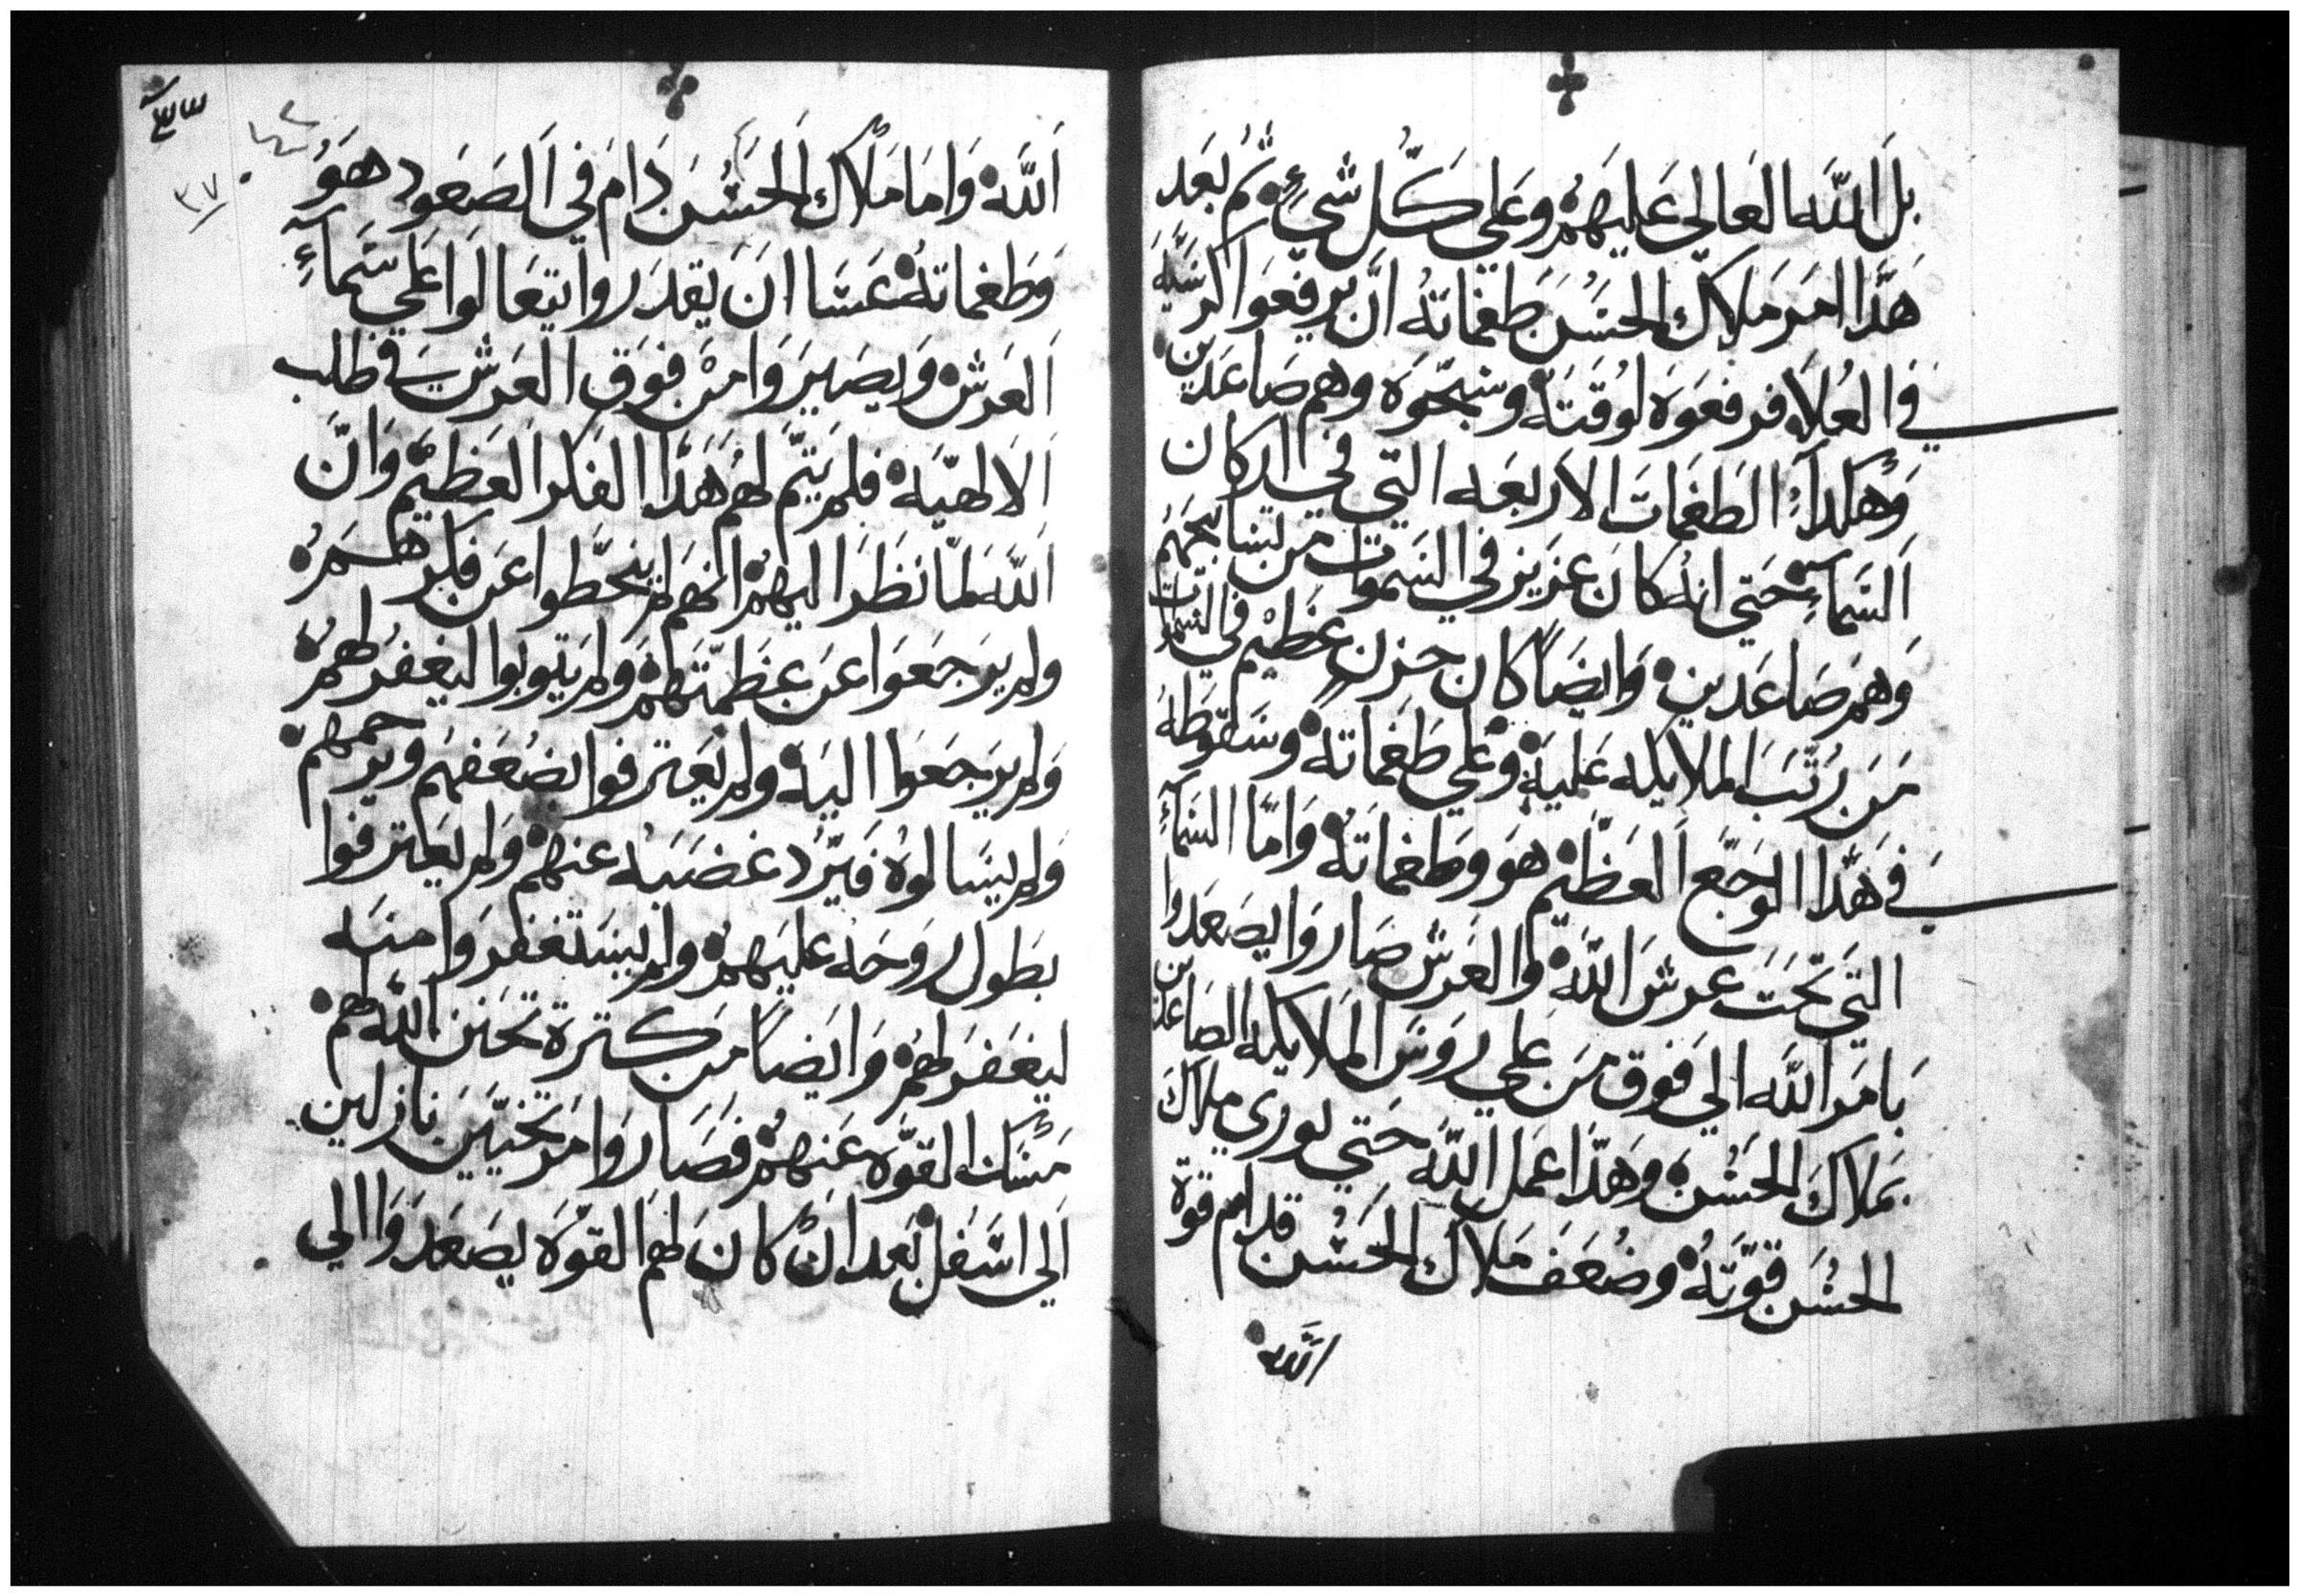 بل الله العالي عليهم وعلي كل شيء ثم بعد
هذا امر ملاك الحسن طغماته ان يرفعوا كرسيه
في العلاه فرفعوه لوقته وسبحوه وهم صاعدين
وهكداء الطغمات الاربعه التي في اركان
السماء حتي انه كان عزيز في السموات من يسابحهم
وهم صاعدين وايضاً كان حزن عظيم في السموات
من رتب الملايكه عليه وعلي طغماته وسقوطه
في هدا الوجع العظيم هو وطغماته واما السماء
التي تحت عرش الله والعرش صاروا يصعدوا
بامر الله الي فوق من علي روس الملايكه الصاعدين
بملاك الحسن وهدا عمل الله حتي يوري ملاك
الحسن قوته وضعف ملاك الحسن قدام قوة
الله
الله واما ملاك الحسن دام في الصعود هو
وطغماته عسا ان يقدروا يتعالوا علي سماء
العرش ويصيروا من فوق العرش في طلب
الالهيه فلم يتم لهم هدا الفكر العظيم وان
الله لما نظر اليهم انهم لم ينحطوا عن فكرهم
ولم يرجعوا عن عظمتهم ولم يتوبوا ليغفر لهم
ولم يرجعوا اليه ولم يعترفوا بضعفهم ويرحمهم
ولم يسالوه فيرد غضبه عنهم ولم يعترفوا
بطول روحه عليهم ولم يستغفروا منه
ليغفر لهم وايضاً من كترة تحنن الله لهم
مسك القوه عنهم فصاروا مرتخيين نازلين
الي اسفل بعد ان كان لهم القوه يصعدوا الي
٣٧